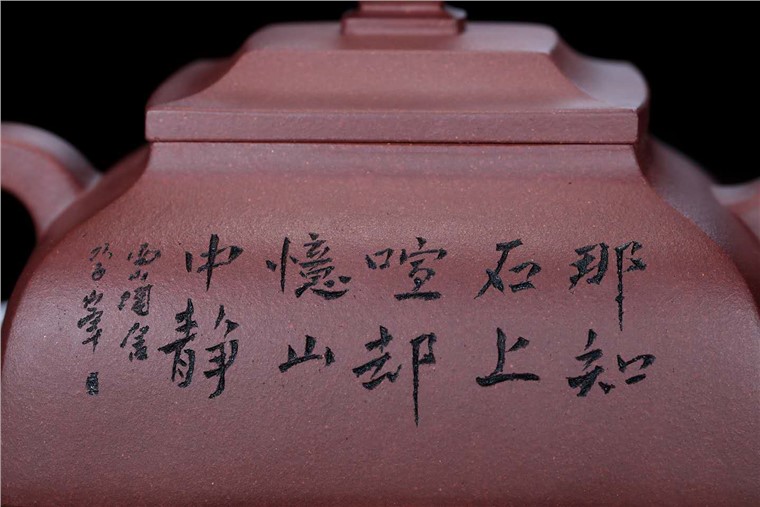 那知
石上
喧却
憶山
中静